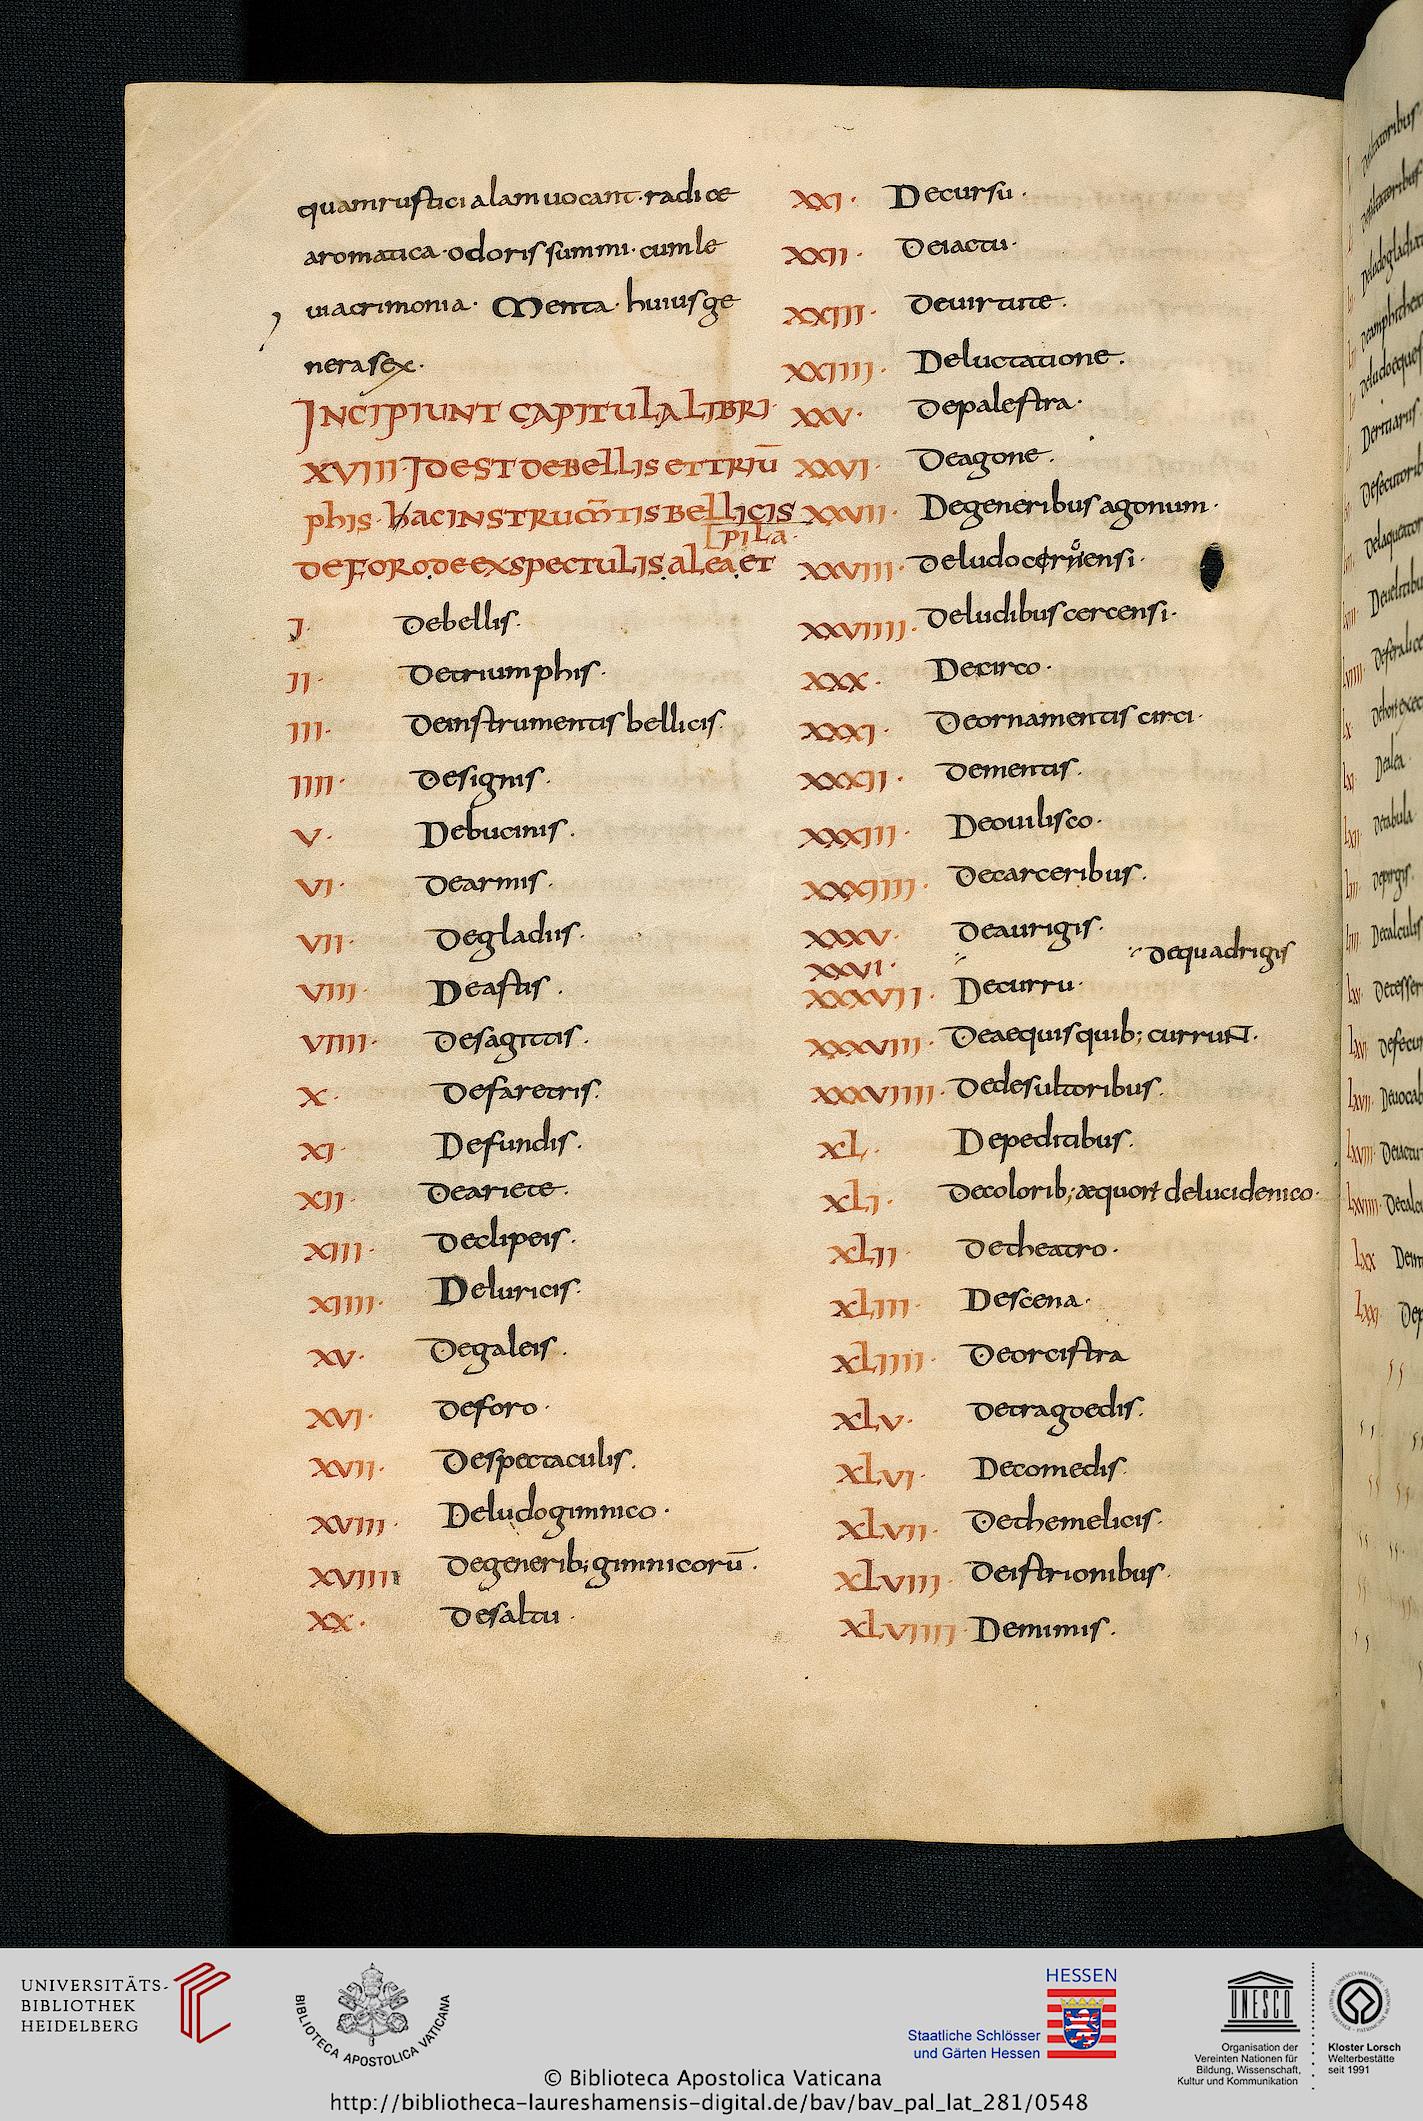 quam rustici alam uocant · radice
aromatica · odoris summi · cum le
ui acrimonia · Menta · huius ge
nera sex ·
INCIPIUNT CAPITULA LIBRI ·
XVIII · ID EST DE BELLIS ET TRIŪ
phis · hac INSTRUM̄TIS BELLICIS
[PILA ·
DE FORO · DE EXSPECTULIS · ALEA · ET
I · De bellis ·
II · De triumphis ·
III · De instrumentis bellicis ·
IIII · De signis ·
V · De bucinis ·
VI · De armis ·
VII · De gladiis ·
VIII · De astis ·
VIIII · De sagittis ·
X · De faretris ·
XI · De fundis ·
XII · De ariete ·
XIII · De clipeis ·
XIIII · De luricis ·
XV · De galeis ·
XVI · De foro ·
XVII · De spectaculis ·
XVIII · De ludo gimnico ·
XVIIII De generib; gimnicorū ·
XX · De saltu ·
XXI · De cursu ·
XXII · De iactu ·
XXIII · De uirtute ·
XXIIII · De luctatione ·
XXV · De palestra ·
XXVI · De agone ·
XXVII · De generibus agonum ·
XXVIII · De ludo
XXVIIII · De ludibus cercensi ·
XXX · De circo ·
XXXI · De ornamentis circi ·
XXXII · De mentis ·
XXXIII · De ouilisco ·
XXXIIII · De carceribus ·
XXXV · De aurigis ·
XXVI · De quadrigis
XXXVII · De curru ·
XXXVIII · De aequis quib; currunt ·
XXXVIIII · De desultoribus ·
XL · De peditibus ·
XLI · De colorib; æquor̄ de lucidenico ·
XLII · De theatro ·
XLIII · De scena ·
XLIIII · De orcistra
XLV · De tragoedis ·
XLVI · De comedis ·
XLVII · De themelicis ·
XLVIII · De istrionibus ·
XLVIIII · De mimis ·
UNIVERSITÄTS-
BIBLIOTHEK
HEIDELBERG
BIBLIOTECA APOSTOLICA VATICANA
HESSEN
Staatliche Schlösser
und Gärten Hessen
UNESCO
Organisation der
Vereinten Nationen für
Bildung, Wissenschaft,
Kultur und Kommunikation
Kloster Lorsch
Welterbestätte
seit 1991
© Biblioteca Apostolica Vaticana
http://bibliotheca-laureshamensis-digital.de/bav/bav_pal_lat_281/0548